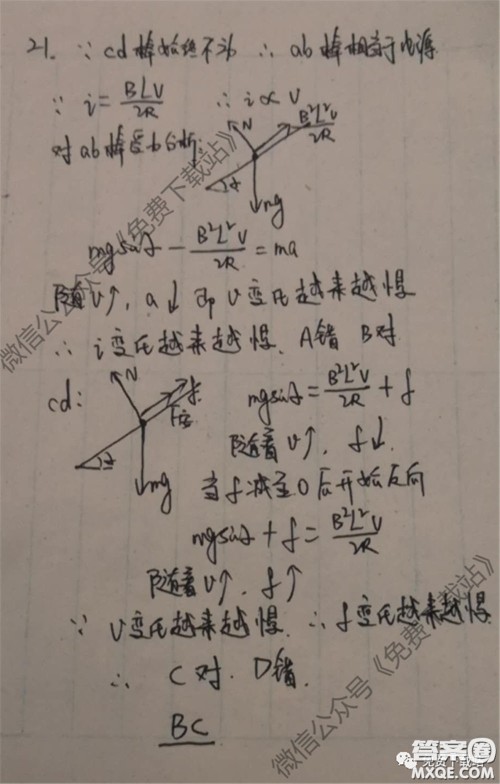 21. ∵ cd棒始终不动 ∴ ab棒相当于电源
∵ i = BLV/2R ∴ i ∝ V
对ab棒受力分析:
N
B²L²V/2R
α
mg
mgsinα − B²L²V/2R = ma
随V↑, a↓ 即V变化越来越慢
∴ i变化越来越慢. A错 B对
cd:
N
f
F安
α
mg
mgsinα = B²L²V/2R + f
随着V↑, f↓.
当f减至0后开始反向
mgsinα + f = B²L²V/2R
随着V↑, f↑
∵ V变化越来越慢. ∴ f变化越来越慢
∴ C对. D错.
BC
微信公众号《免费下载站》
微信公众号《免费下载站》
免费下载站
答案圈
MXQE.COM